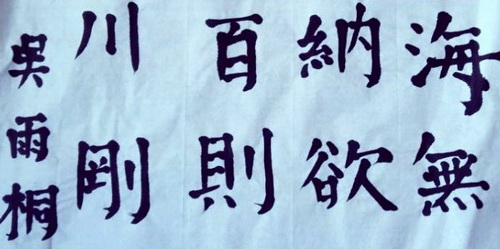 海納百川
無欲則剛
吳雨桐